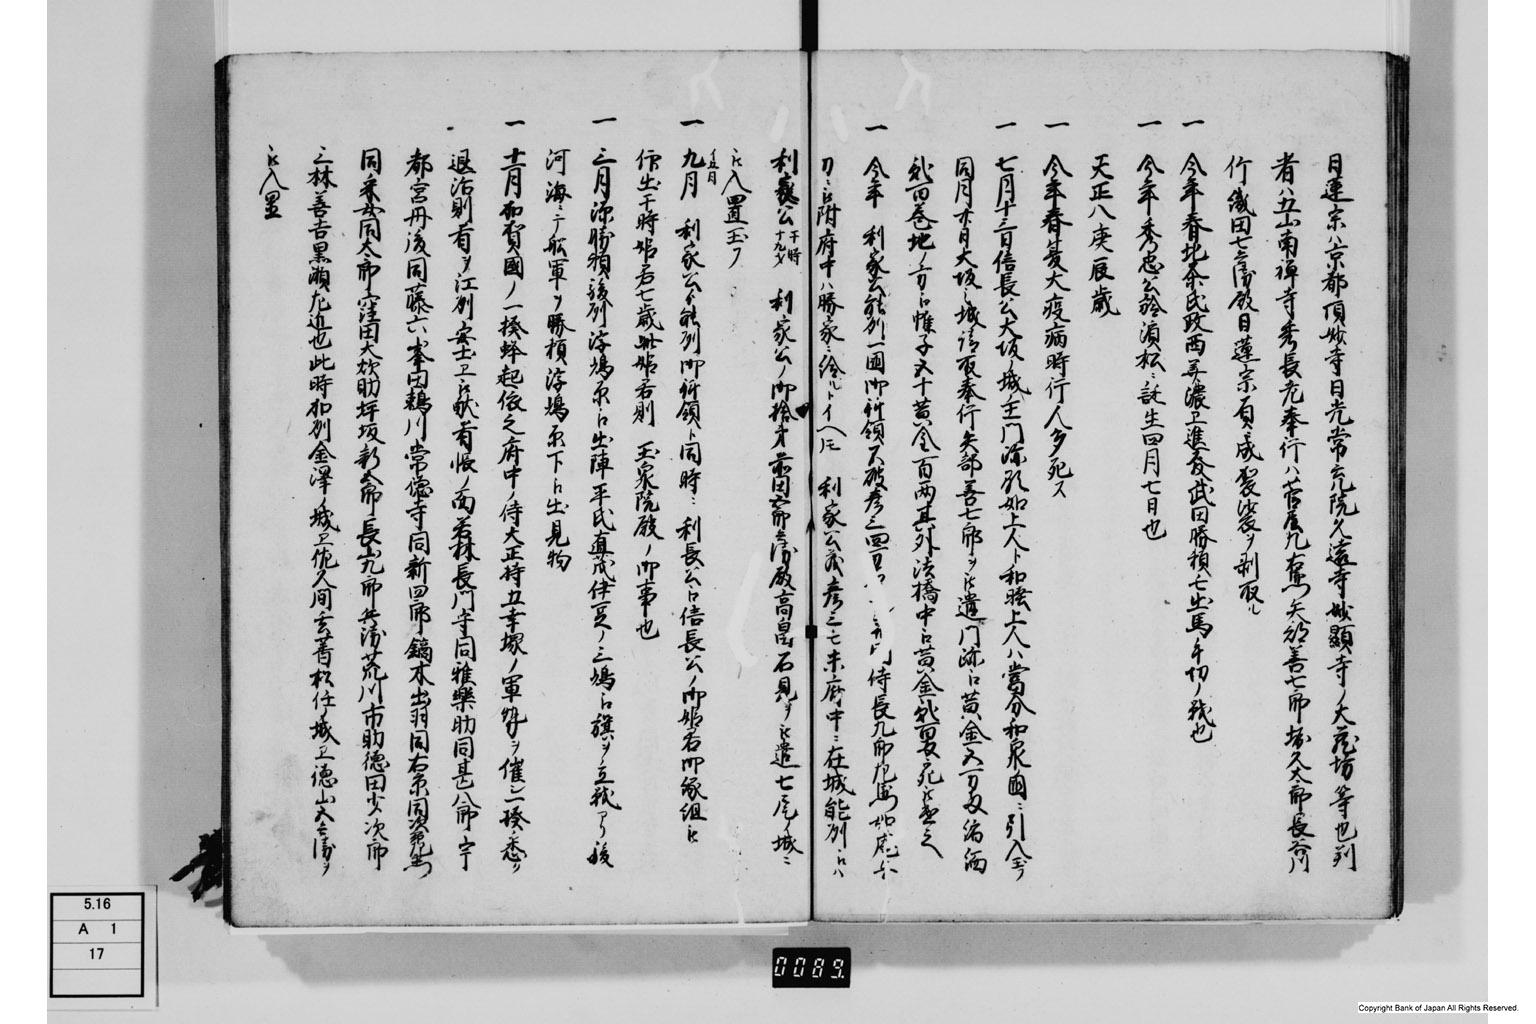 日蓮宗ハ京都頂妙寺日光常光院久遠寺妙顕寺ノ大蔵坊等也判
者ハ五山南禅寺秀長老奉行ハ菅屋九右衛門矢部善七郎堀久太郎長谷川
竹織田七兵衛殿日蓮宗負ニ成袈裟ヲ剥取ル
一 今年春北条氏政西美濃エ進発武田勝頼モ出馬
一 今年秀忠公於濱松ニ誕生四月七日也
天正八庚辰歳
一 今年春夏大疫病時行人多死ス
一 七月十三日信長公大坂ノ城主門跡顕如上人ト和睦上人ハ當分和泉國ニ引入玉フ
同月廿日大坂之城請取奉行矢部善七郎ヲ被遣門跡江黄金
地ノ方江帷子五十黄金百両其外法橋中江黄金
一 今年 利家公能州一國御拝領不破彦三 侍長九郎左衛門
刀ニ江附府中ハ勝家ニ給ルトイヘ𪜈 利家公彦三モ未府中ニ在城能州江ハ
利家公ノ御捨弟前田五郎兵衛殿高畠石見ヲ被遣七尾ノ城ニ
干時十九才
被入置玉フ
一 九月 利家公能州御拝領ト同時ニ利長公江信長公ノ御姫君御縁組被
仰出干時姫君七歳此姫君則 玉泉院殿ノ御事也
一 三月源勝頼駿州浮嶋原江出陣平氏直茂伊豆ノ三嶋江旗ヲ立戦アリ後
河海ニテ舩軍ヲ勝頼浮嶋原下江出見物
一 十一月加賀國ノ一揆蜂起依之府中ノ侍大正持五幸塚ノ軍勢ヲ催シ一揆ヲ悉ク
退治則首ヲ江州安土エ被献首帳ノ面若林長門守同雅樂助同甚八郎宇
都宮丹後同藤六峯田鶴川常徳寺同新四郎鏑木出羽同右京同
同采女同太郎窪田大炊助坪坂新五郎長山九郎兵衛荒川市助徳田少次郎
三林善吉黒瀬左近也此時加州金澤ノ城エ佐久間玄蕃松任ノ城エ徳山五兵衛ヲ
被入置
5.16
A 1
17
0089.
Copyright Bank of Japan All Rights Reserved.